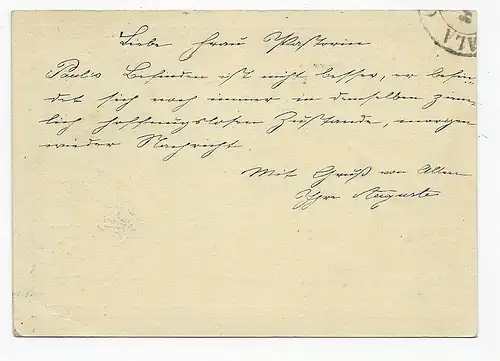 Liebe Frau Pastorin
Paul's Befinden ist nicht besser, er befin-
det sich noch immer in demselben ziem-
lich hoffnungslosen Zustande, morgen
wieder Nachricht.
Mit Gruß von Allen
Ihre Auguste
ALA